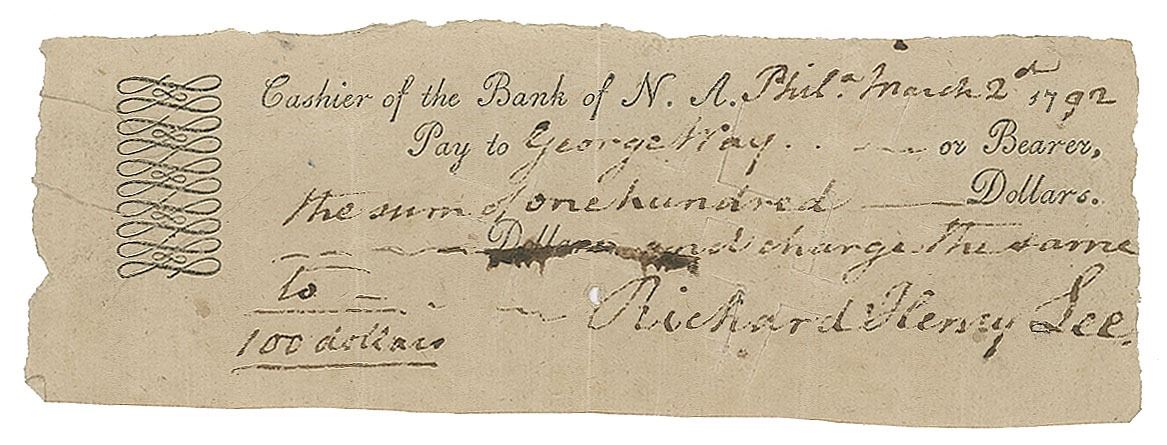 Cashier of the Bank of N. A. Phila. March 2d 1792
Pay to George Way or Bearer,
the sum of one hundred Dollars.
Dollars and charge the same
to
Richard Henry Lee.
100 dollars